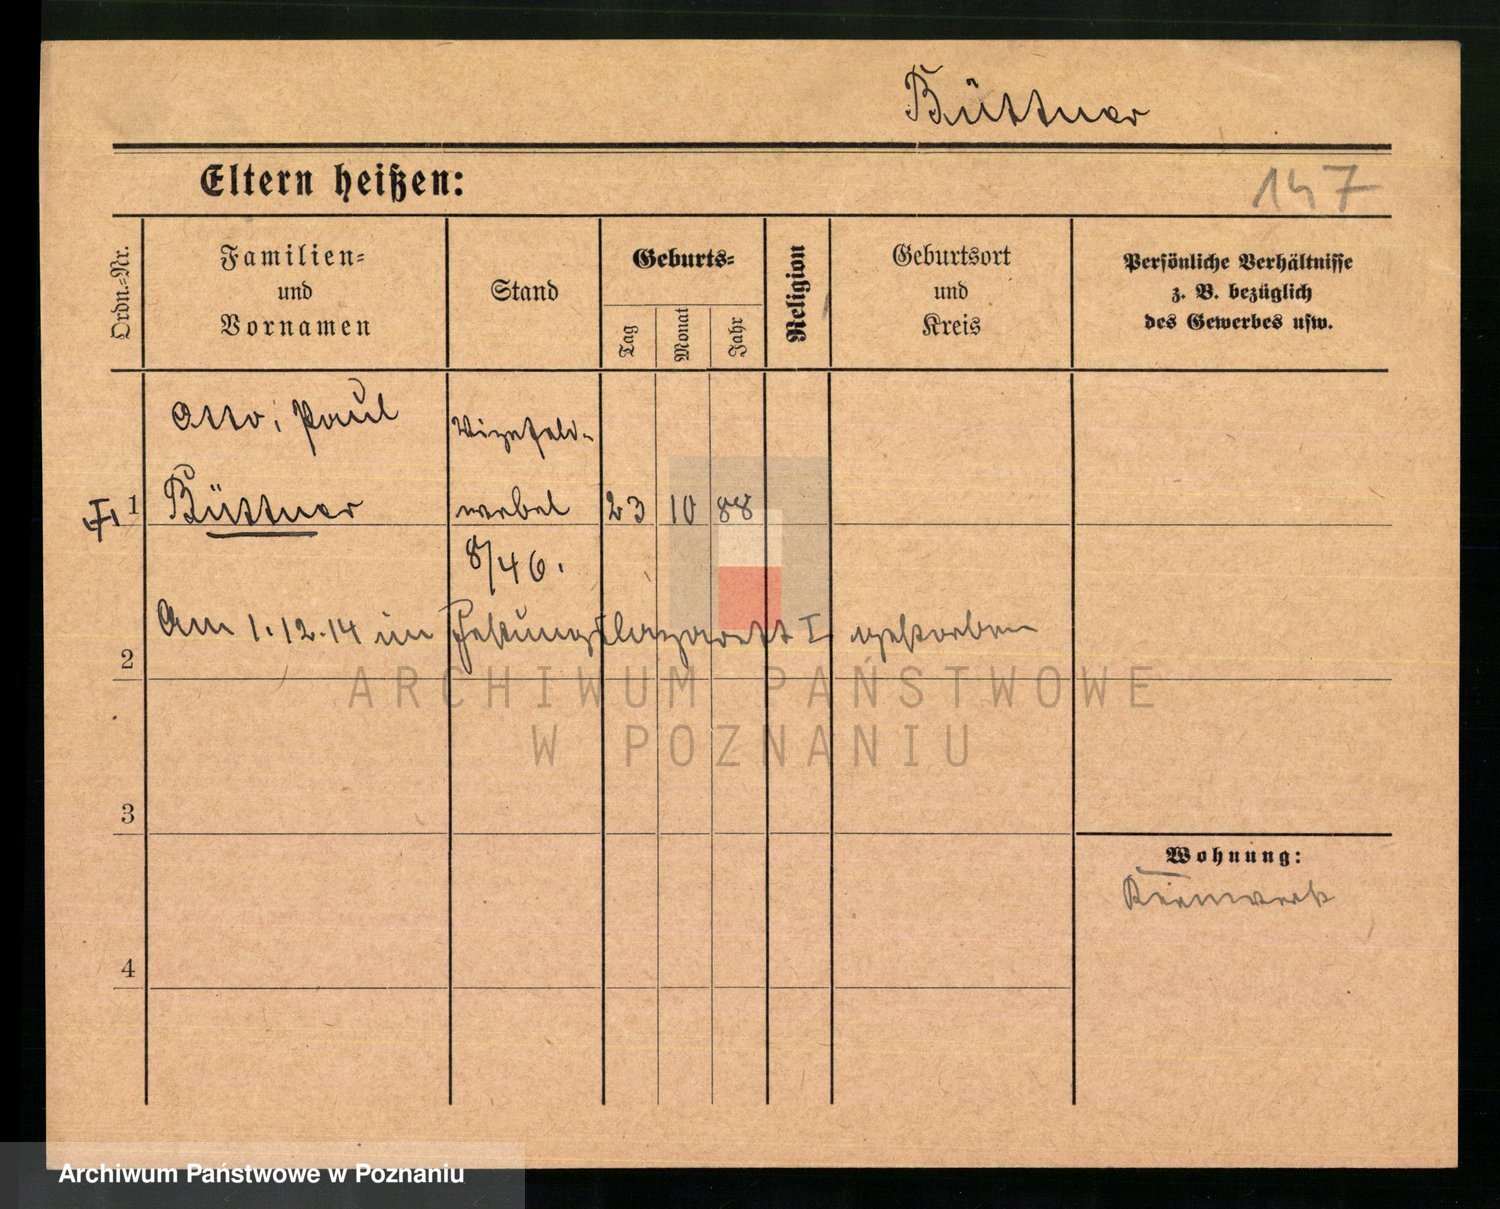 Büttner
Eltern heißen:
147
Ordn.-Nr.
Familien- und Vornamen
Stand
Geburts-
Tag
Monat
Jahr
Religion
Geburtsort und Kreis
Persönliche Verhältnisse
z. B. bezüglich
des Gewerbes usw.
Otto, Paul
Vizefeld-
1
Büttner
webel
23
10
88
8/46.
Am 1.12.14 im Festungslazarett I gestorben
2
ARCHIWUM PAŃSTWOWE
W POZNANIU
3
Wohnung:
Kernwerk
4
Archiwum Państwowe w Poznaniu